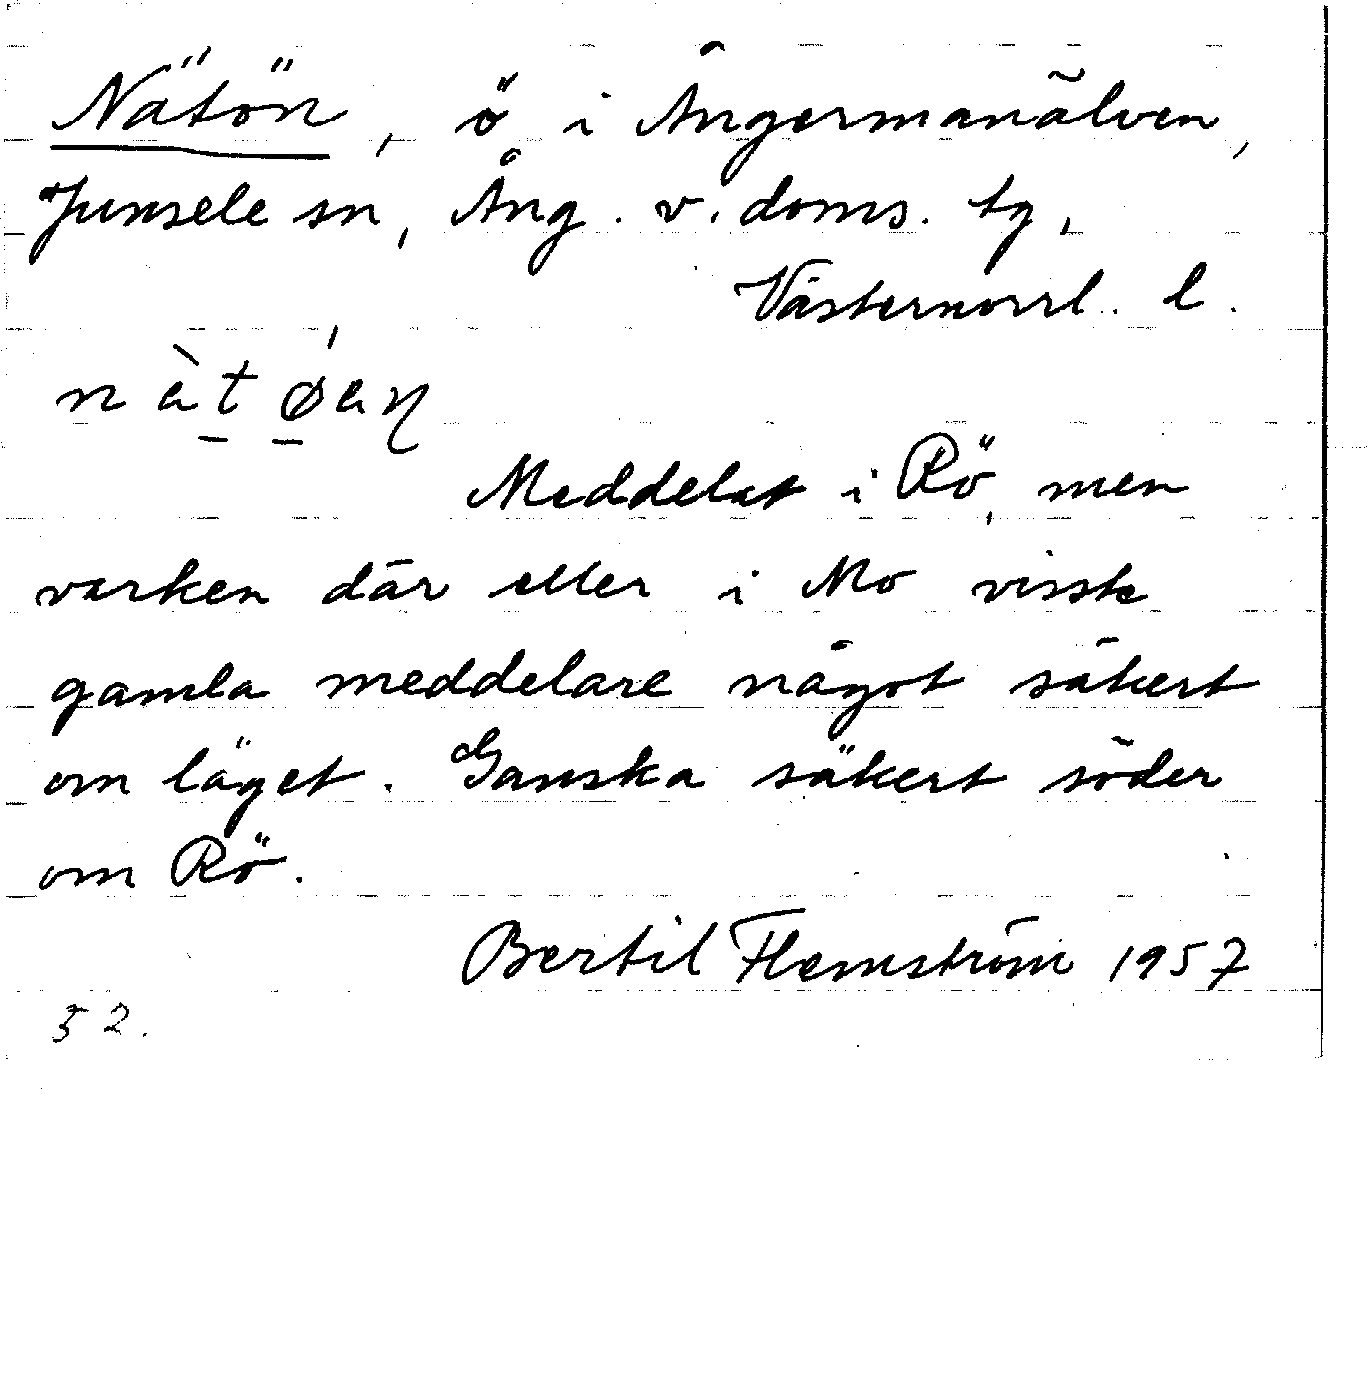 Nätön, ö i Ångermanälven,
Junsele sn, Ång. v. doms. tg,
Västernorrl. l.
Meddelat i Rö, men
varken där eller i Mo visste
gamla meddelare något säkert
om läget. Ganska säkert söder
om Rö.
Bertil Flemström 1957
52.